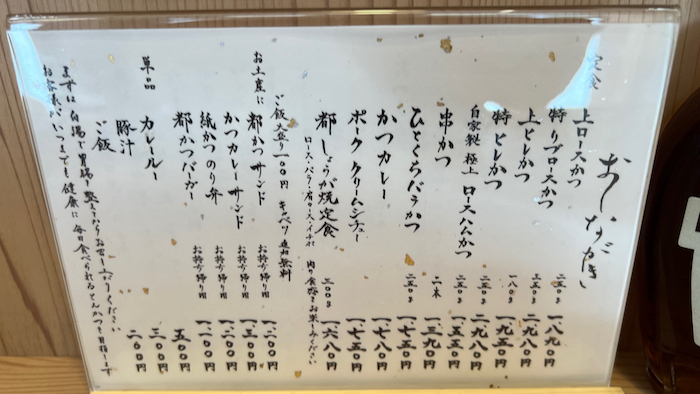 おしながき
定食
上ロースかつ 二五〇g 一、八九〇円
特リブロースかつ 三五〇g 二、九八〇円
上ヒレかつ 一、九五〇円
特ヒレかつ 一八〇g 二、九八〇円
自家製 極上 ロースハムかつ 二五〇g
串かつ 二本 一、三九〇円
ひとくちバラかつ 二五〇g 一、七五〇円
かつカレー 一、七八〇円
ポーク クリームシチュー
都 しょうが焼定食 三〇〇g 一、六八〇円
ロース・バラ・肩ロース・イチボ 肉の食感をお楽しみください
ご飯大盛り一〇〇円 キャベツ 追加無料
お土産に
都かつサンド お持ち帰り用 一、二〇〇円
かつカレーサンド お持ち帰り用 一、三〇〇円
紙かつのり弁 お持ち帰り用 一、二〇〇円
都かつバーガー お持ち帰り用 一、一〇〇円
単品
カレールー 五〇〇円
豚汁 三〇〇円
ご飯 二〇〇円
まずは白湯で胃腸を整えてからお召し上がりください
お客様がいつまでも健康に 毎日食べられるとんかつを目指します